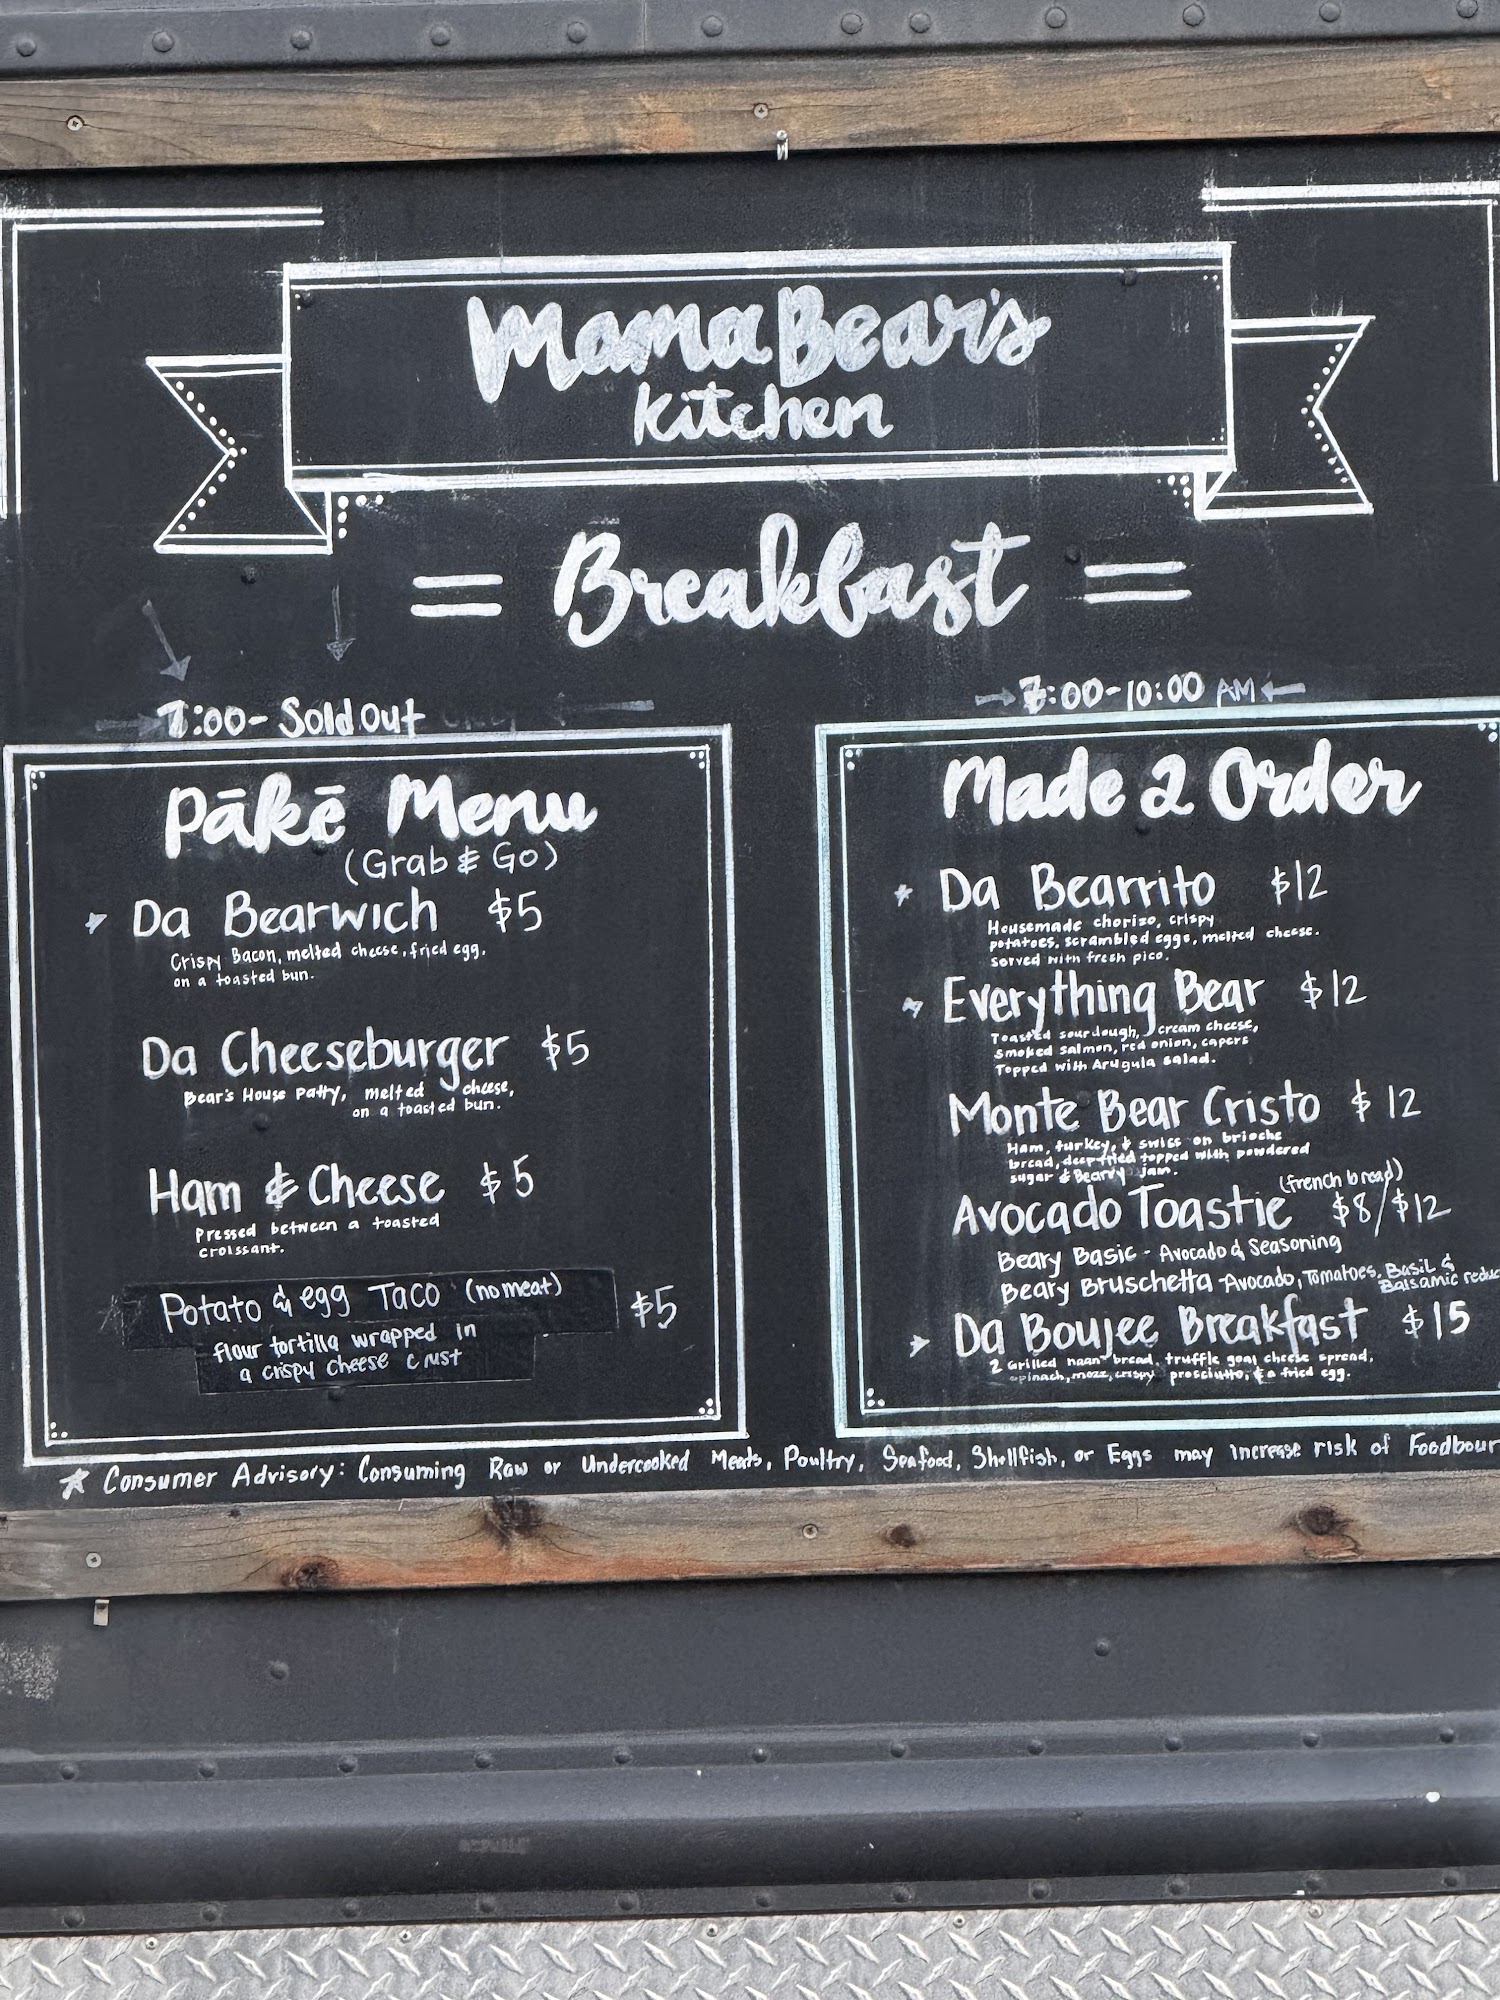 Mama Bear's
Kitchen
= Breakfast =
7:00- Sold Out
Pākē Menu
(Grab & Go)
Da Bearwich $5
Crispy Bacon, melted cheese, fried egg,
on a toasted bun.
Da Cheeseburger $5
Bear's House Patty, melted cheese,
on a toasted bun.
Ham & Cheese $5
Pressed between a toasted
croissant.
Potato & egg Taco (no meat) $5
flour tortilla wrapped in
a crispy cheese crust
7:00-10:00 AM
Made 2 Order
Da Bearrito $12
Housemade chorizo, crispy
potatoes, scrambled eggs, melted cheese.
served with fresh pico.
Everything Bear $12
Toasted sourdough, cream cheese,
smoked salmon, red onion, capers
Topped with Arugula salad.
Monte Bear Cristo $12
Ham, turkey, & swiss on brioche
bread, deep fried topped with powdered
sugar & Bearry jam.
(french bread)
Avocado Toastie $8/$12
Beary Basic - Avocado & Seasoning
Beary Bruschetta - Avocado, Tomatoes, Basil &
Balsamic reduc
Da Boujee Breakfast $15
2 Grilled naan bread, truffle goat cheese spread,
spinach, mozz, crispy prosciutto, & a fried egg.
☆ Consumer Advisory: Consuming Raw or Undercooked Meats, Poultry, Seafood, Shellfish, or Eggs may increase risk of Foodbour